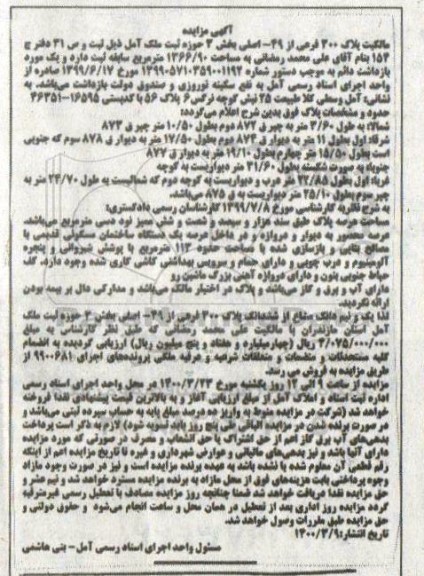 آگهی مزایده
مالکیت پلاک ۳۰۰ فرعی از ۴۹- اصلی بخش ۳ حوزه ثبت ملک آمل ذیل ثبت و ص ۳۱ دفتر ج
۱۵۴ بنام آقای علی محمد رمضانی به مساحت ۱۳۶۶/۹۰ مترمربع سابقه ثبت دارد و یک مورد
بازداشت دائم به موجب دستور شماره ۱۳۹۹۰۵۷۱۰۳۵۹۰۰۱۱۹۴ مورخ ۱۳۹۹/۶/۱۷ صادره از
واحد اجرای اسناد رسمی آمل به نفع سکینه نوروزی و صندوق دولت بازداشت می‌باشد. به
نشانی: آمل وسطی کلا طبیعت ۲۵ نبش کوچه نرگس ۶ پلاک ۵۶ با کدپستی ۱۶۵۹۵-۴۶۳۵۱
حدود و مشخصات پلاک فوق بدین شرح اعلام می‌گردد:
شمالا: به طول ۳/۶۰ متر به چپر ق ۸۷۲ دوم بطول ۱۰/۵۰ متر چپر ق ۸۷۳
شرقا: اول بطول ۱۱ متر به دیوار ق ۸۷۳ دوم بطول ۱۷/۵۰ متر به دیوار ق ۸۷۸ سوم که جنوبی
است بطول ۱۵/۵۰ متر چهارم بطول ۱۹/۱۰ متر به دیوار ق ۸۷۷
جنوبا: به صورت شکسته بطول ۳۱/۶۰ متر دیواریست به کوچه
غربا: اول بطول ۲۲/۸۵ متر درب و دیواریست به کوچه دوم که شمالیست به طول ۲۴/۷۰ متر به
چپر سوم بطول ۲۵/۱۰ متر دیواریست به ق ۸۷۵ می‌باشد.
به شرح نظریه کارشناسی مورخ ۱۳۹۹/۷/۸ کارشناسان رسمی دادگستری:
مساحت عرصه پلاک طبق سند هزار و سیصد و شصت و شش ممیز نود دسی مترمربع می‌باشد.
عرصه محصور به دیوار و دروازه و در داخل عرصه یک دستگاه ساختمان مسکونی قدیمی با
مصالح بنایی و بازسازی شده با مساحت حدود ۱۱۳ مترمربع با پوشش شیروانی و پنجره
آلومینیوم و درب چوبی و دارای حمام و سرویس بهداشتی کاشی کاری شده وجود دارد. کف
حیاط جنوبی بتون و دارای دروازه آهنی بزرگ ماشین رو
دارای آب و برق و گاز می‌باشد و پلاک در اختیار مالک می‌باشد و مدارکی دال بر بیمه بودن
ارائه نگردید.
لذا یک و نیم دانگ مشاع از ششدانگ پلاک ۳۰۰ فرعی از ۴۹- اصلی بخش ۳ حوزه ثبت ملک
آمل استان مازندران با مالکیت علی محمد رمضانی که طبق نظر کارشناس به مبلغ
۴/۰۷۵/۰۰۰/۰۰۰ ریال (چهارمیلیارد و هفتاد و پنج میلیون ریال) ارزیابی گردیده به انضمام
کلیه مستحدثات و منضمات و متعلقات شرعیه و عرفیه ملکی پرونده‌های اجرای ۹۹۰۰۶۸۱ از
طریق مزایده به فروش می رسد.
مزایده از ساعت ۹ الی ۱۲ روز یکشنبه مورخ ۱۴۰۰/۳/۲۳ در محل واحد اجرای اسناد رسمی
اداره ثبت اسناد و املاک آمل از مبلغ ارزیابی آغاز و به بالاترین قیمت پیشنهادی نقدا فروخته
خواهد شد (شرکت در مزایده منوط به واریز ده درصد مبلغ پایه به حساب سپرده ثبتی می‌باشد و
در صورت برنده شدن در مزایده الباقی طی پنج روز باید تسویه شود) لازم به ذکر است پرداخت
بدهی‌های آب برق گاز اعم از حق اشتراک یا حق انشعاب و مصرف در صورتی که مورد مزایده
دارای آنها باشد و نیز بدهی‌های مالیاتی و عوارض شهرداری و غیره تا تاریخ مزایده اعم از اینکه
رقم قطعی آن معلوم شده یا نشده باشد به عهده برنده مزایده است و نیز در صورت وجود مازاد
وجوه پرداختی بابت هزینه‌های فوق از محل مازاد به برنده مزایده مسترد خواهد شد و نیم عشر و
حق مزایده نقدا دریافت خواهد شد ضمنا چنانچه روز مزایده مصادف با تعطیل رسمی غیرمترقبه
گردد مزایده روز اداری بعد از تعطیل در همان محل و ساعت انجام می‌شود و حقوق دولتی و
حق مزایده طبق مقررات وصول خواهد شد.
تاریخ انتشار: ۱۴۰۰/۳/۹
مسئول واحد اجرای اسناد رسمی آمل - بنی هاشمی